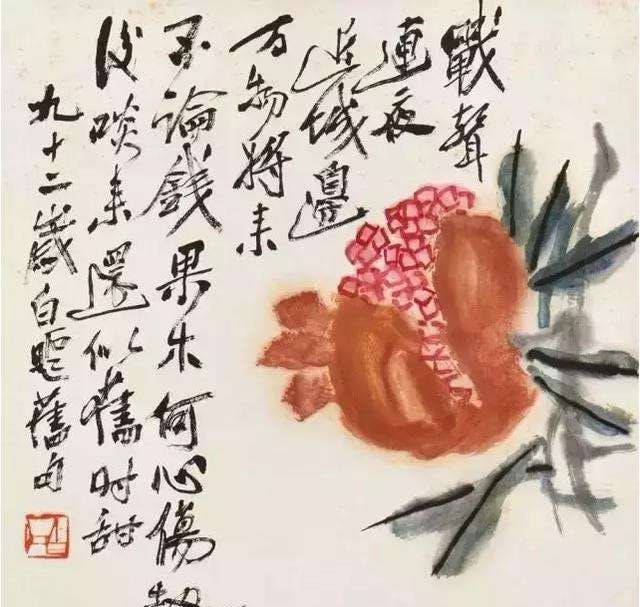 戰聲
連夜
近城邊
万物將來
不論錢果木何心傷
後啖來還似舊時甜
九十二歲白題舊句